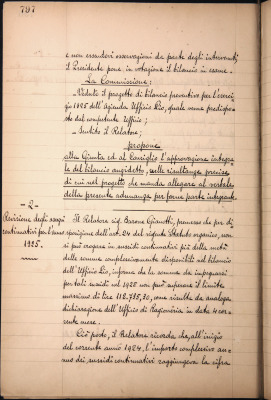 797
e non essendovi osservazioni da parte degli intervenuti,
il Presidente pone in votazione il bilancio in esame.
La Commissione:
- Veduto il progetto di bilancio preventivo per l'eserci-
zio 1925 dell'Azienda Ufficio Lio, quale venne predispo-
sto dal competente Ufficio;
- Sentito il Relatore;
propone
alla Giunta ed al Consiglio l'approvazione integra-
le del bilancio anzidetto, nelle risultanze precise
di cui nel progetto che manda allegare al verbale
della presente adunanza per farne parte integrante.
- 2 -
Revisione degli assegni
continuativi per l'anno
1925.
Il Relatore sig. Barone Gianotti, premesso che per di-
sposizione dell'art. 24 del vigente Statuto organico, non
si può erogare in sussidi continuativi più della metà
delle somme complessivamente disponibili nel bilancio
dell'Ufficio Lio, informa che la somma da impegnarsi
per tali sussidi nel 1925 non può superare il limite
massimo di lire 112.735,70, come risulta da analoga
dichiarazione dell'Ufficio di Ragioneria in data 4 cor-
rente mese.
Ciò posto, il Relatore ricorda che, all'inizio
del corrente anno 1924, l'importo complessivo an-
nuo dei sussidi continuativi raggiungeva la cifra